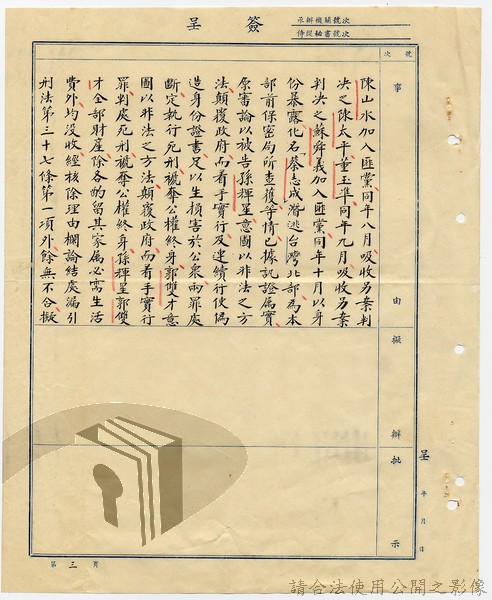 簽呈
承辦機關號次
侍從秘書號次
號次
事由擬辦批示
陳山水加入匪黨同年八月吸收另案判
決之陳太平董玉準同年九月吸收另案
判決之蘇舜義加入匪黨同年十月以身
份暴露化名蔡志成潛逃台灣北部為本
部前保密局所查獲等情已據訊證屬實
原審論以被告孫輝星意圖以非法之方
法顛覆政府而着手實行及連續行使偽
造身份證書足以生損害於公衆兩罪處
斷定執行死刑褫奪公權終身郭雙才意
圖以非法之方法顛覆政府而着手實行
罪判處死刑褫奪公權終身孫輝星郭雙
才全部財產除各酌留其家属必需生活
費外均沒收經核除理由欄論結處漏引
刑法第三十七條第一項外餘無不合擬
呈 年 月 日
第三頁
請合法使用公開之影像